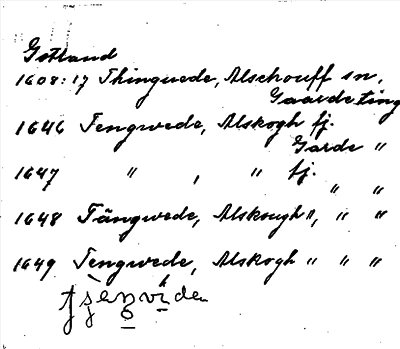 Gotland
1608:17 Thinguede, Alschouff sn,
Gaarde ting
1646 Tengwede, Alskogh fj.
Garde "
1647 " , " fj.
" "
1648 Tängwede, Alskough ", " "
1649 Tengwede, Alskogh " " "